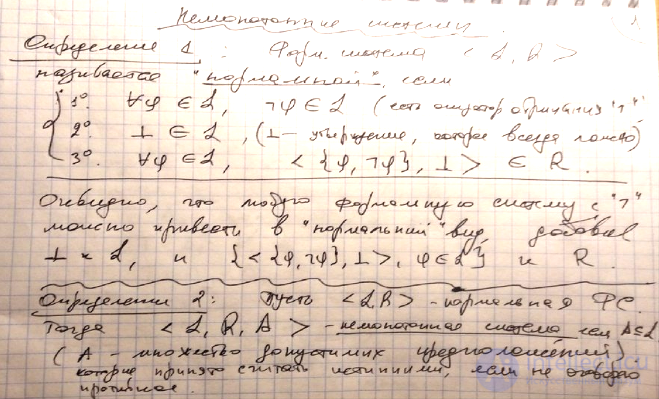 Немонотонные системы.
Определение 1: Форм. система < L, R >
называется "нормальной", если
1°. ∀φ ∈ L, ¬φ ∈ L (есть оператор отрицания "¬")
2°. ⊥ ∈ L, (⊥ – утверждение, которое всегда ложно)
3°. ∀φ ∈ L, < {φ, ¬φ}, ⊥ > ∈ R.
Очевидно, что любую формальную систему с "¬"
можно привести в "нормальный" вид, добавив
⊥ к L, и {< {φ, ¬φ}, ⊥ >, φ ∈ L} к R.
Определение 2: Пусть < L, R > – нормальная ФС.
Тогда < L, R, A > – немонотонная система если A ⊆ L
(A – множество допустимых предположений).
которые принято считать истинными, если не оговорено
противное.